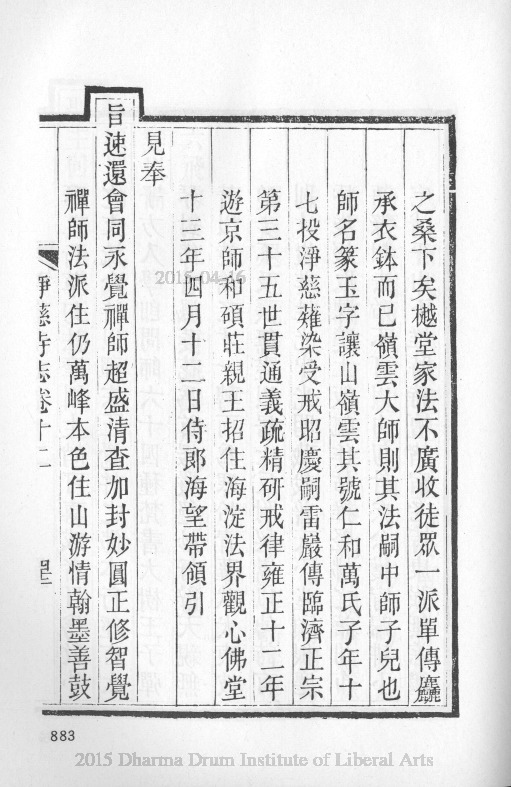 之桑下矣樾堂家法不廣收徒眾一派單傳麤
承衣鉢而已嶺雲大師則其法嗣中師子兒也
師名篆玉字讓山嶺雲其號仁和萬氏子年十
七投淨慈薙染受戒昭慶嗣雷巖傳臨濟正宗
第三十五世貫通義疏精研戒律雍正十二年
遊京師和碩莊親王招住海淀法界觀心佛堂
十三年四月十二日侍郎海望帶領引
見奉
旨速還會同永覺禪師超盛清查加封妙圓正修智覺
禪師法派住仍萬峰本色住山游情翰墨善鼓
淨慈寺志卷十二
2015-04-16
883
2015 Dharma Drum Institute of Liberal Arts